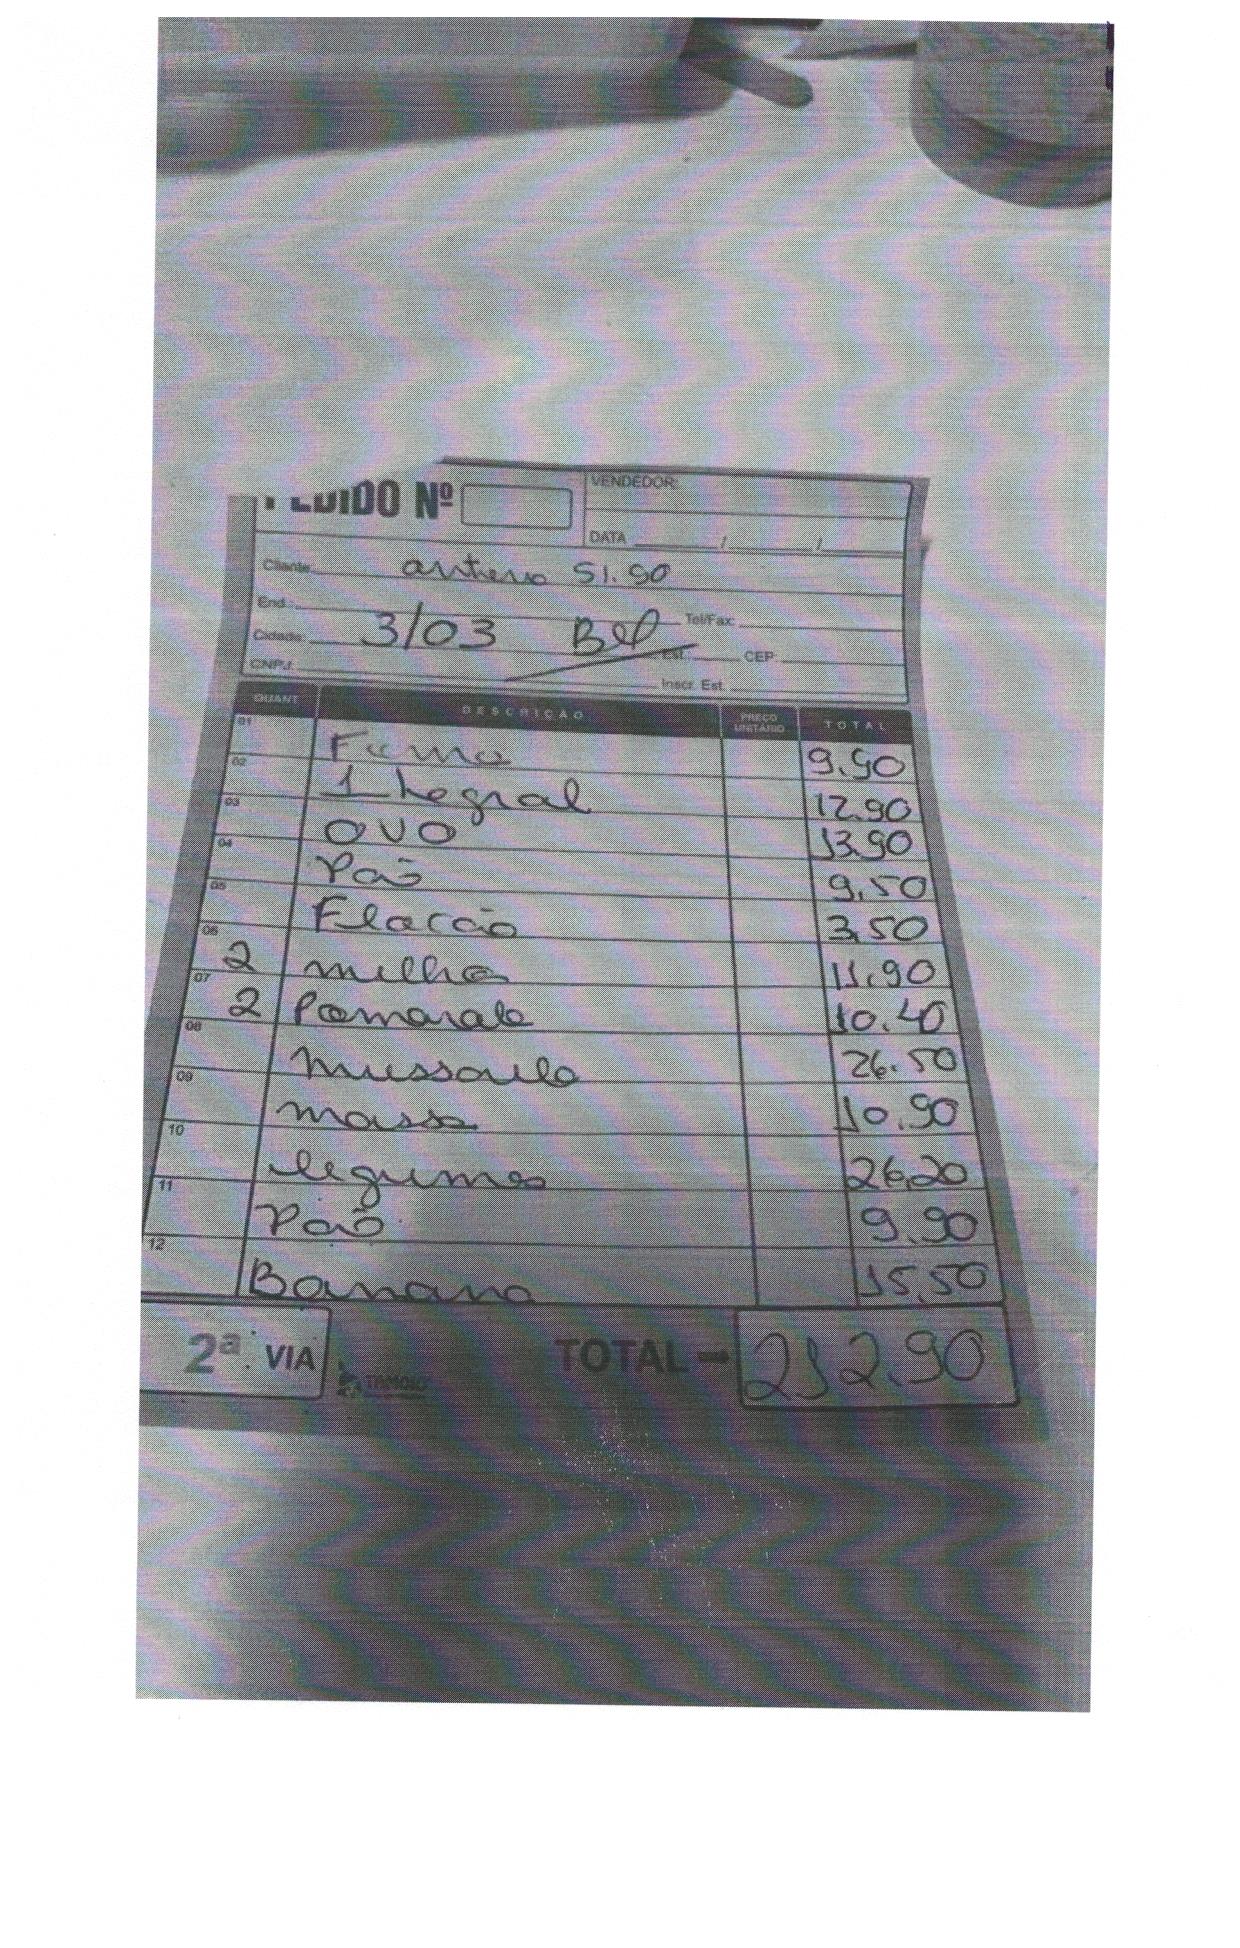 PEDIDO Nº
VENDEDOR:
DATA ____/____/____
Cliente: antero 51.90
End.:
3/03 Bel Tel/Fax:
Cidade: Est.: CEP:
CNPJ: Inscr. Est.
QUANT. DESCRIÇÃO PREÇO UNITÁRIO TOTAL
01 9.90
02 Integral 12.90
03 OVO 13.90
04 Pão 9,50
05 Flocão 3,50
06 2 milho 11.90
07 2 Pomarola 10.40
08 Mussarela 26.50
09 massa 10.90
10 legumes 26,20
11 Pão 9.90
12 Banana 15,50
2ª VIA TAMOIO TOTAL 212.90